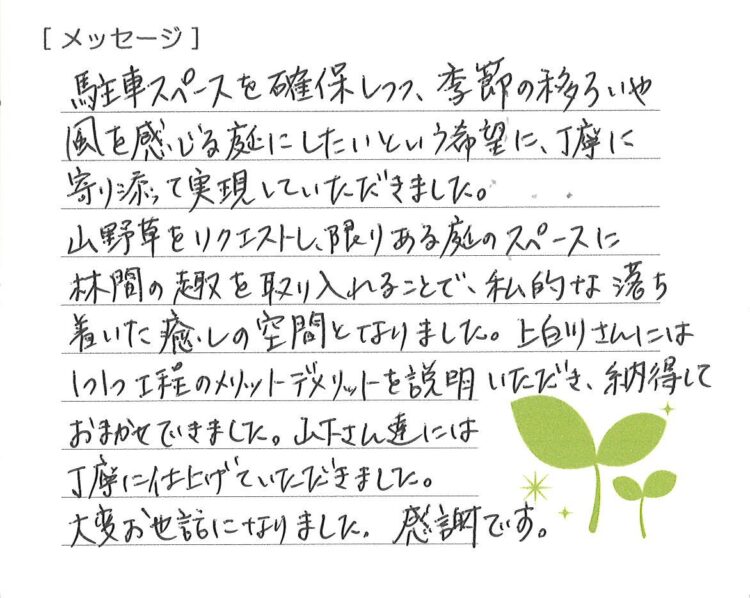 [ メッセージ ]
駐車スペースを確保しつつ、季節の移ろいや
風を感じる庭にしたいという希望に、丁寧に
寄り添って実現していただきました。
山野草をリクエストし、限りある庭のスペースに
林間の趣を取り入れることで、私的な落ち
着いた癒しの空間となりました。上白川さんには
1つ1つ工程のメリットデメリットを説明いただき、納得して
おまかせできました。山下さん達には
丁寧に仕上げていただきました。
大変お世話になりました。感謝です。